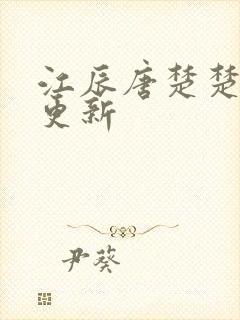 江辰唐楚楚
更新
尹葵